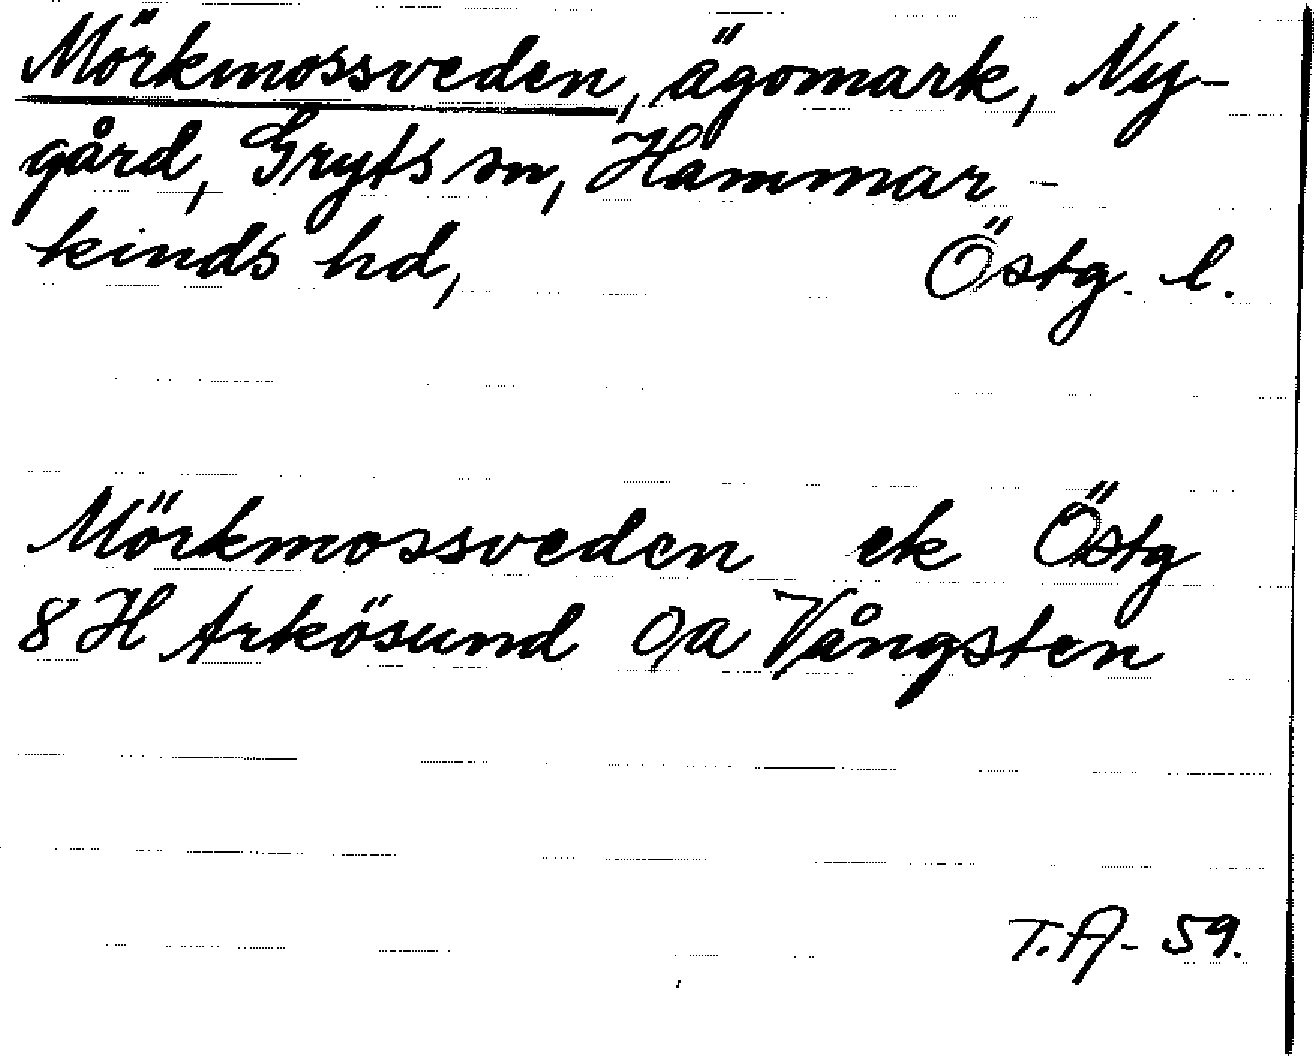 Mörkmossveden, ägomark, Ny-
gård, Gryts sn, Hammar-
kinds hd, Östg. l.
Mörkmossveden ek Östg
8 H Arkösund o/a Vångsten
T. A - 59.